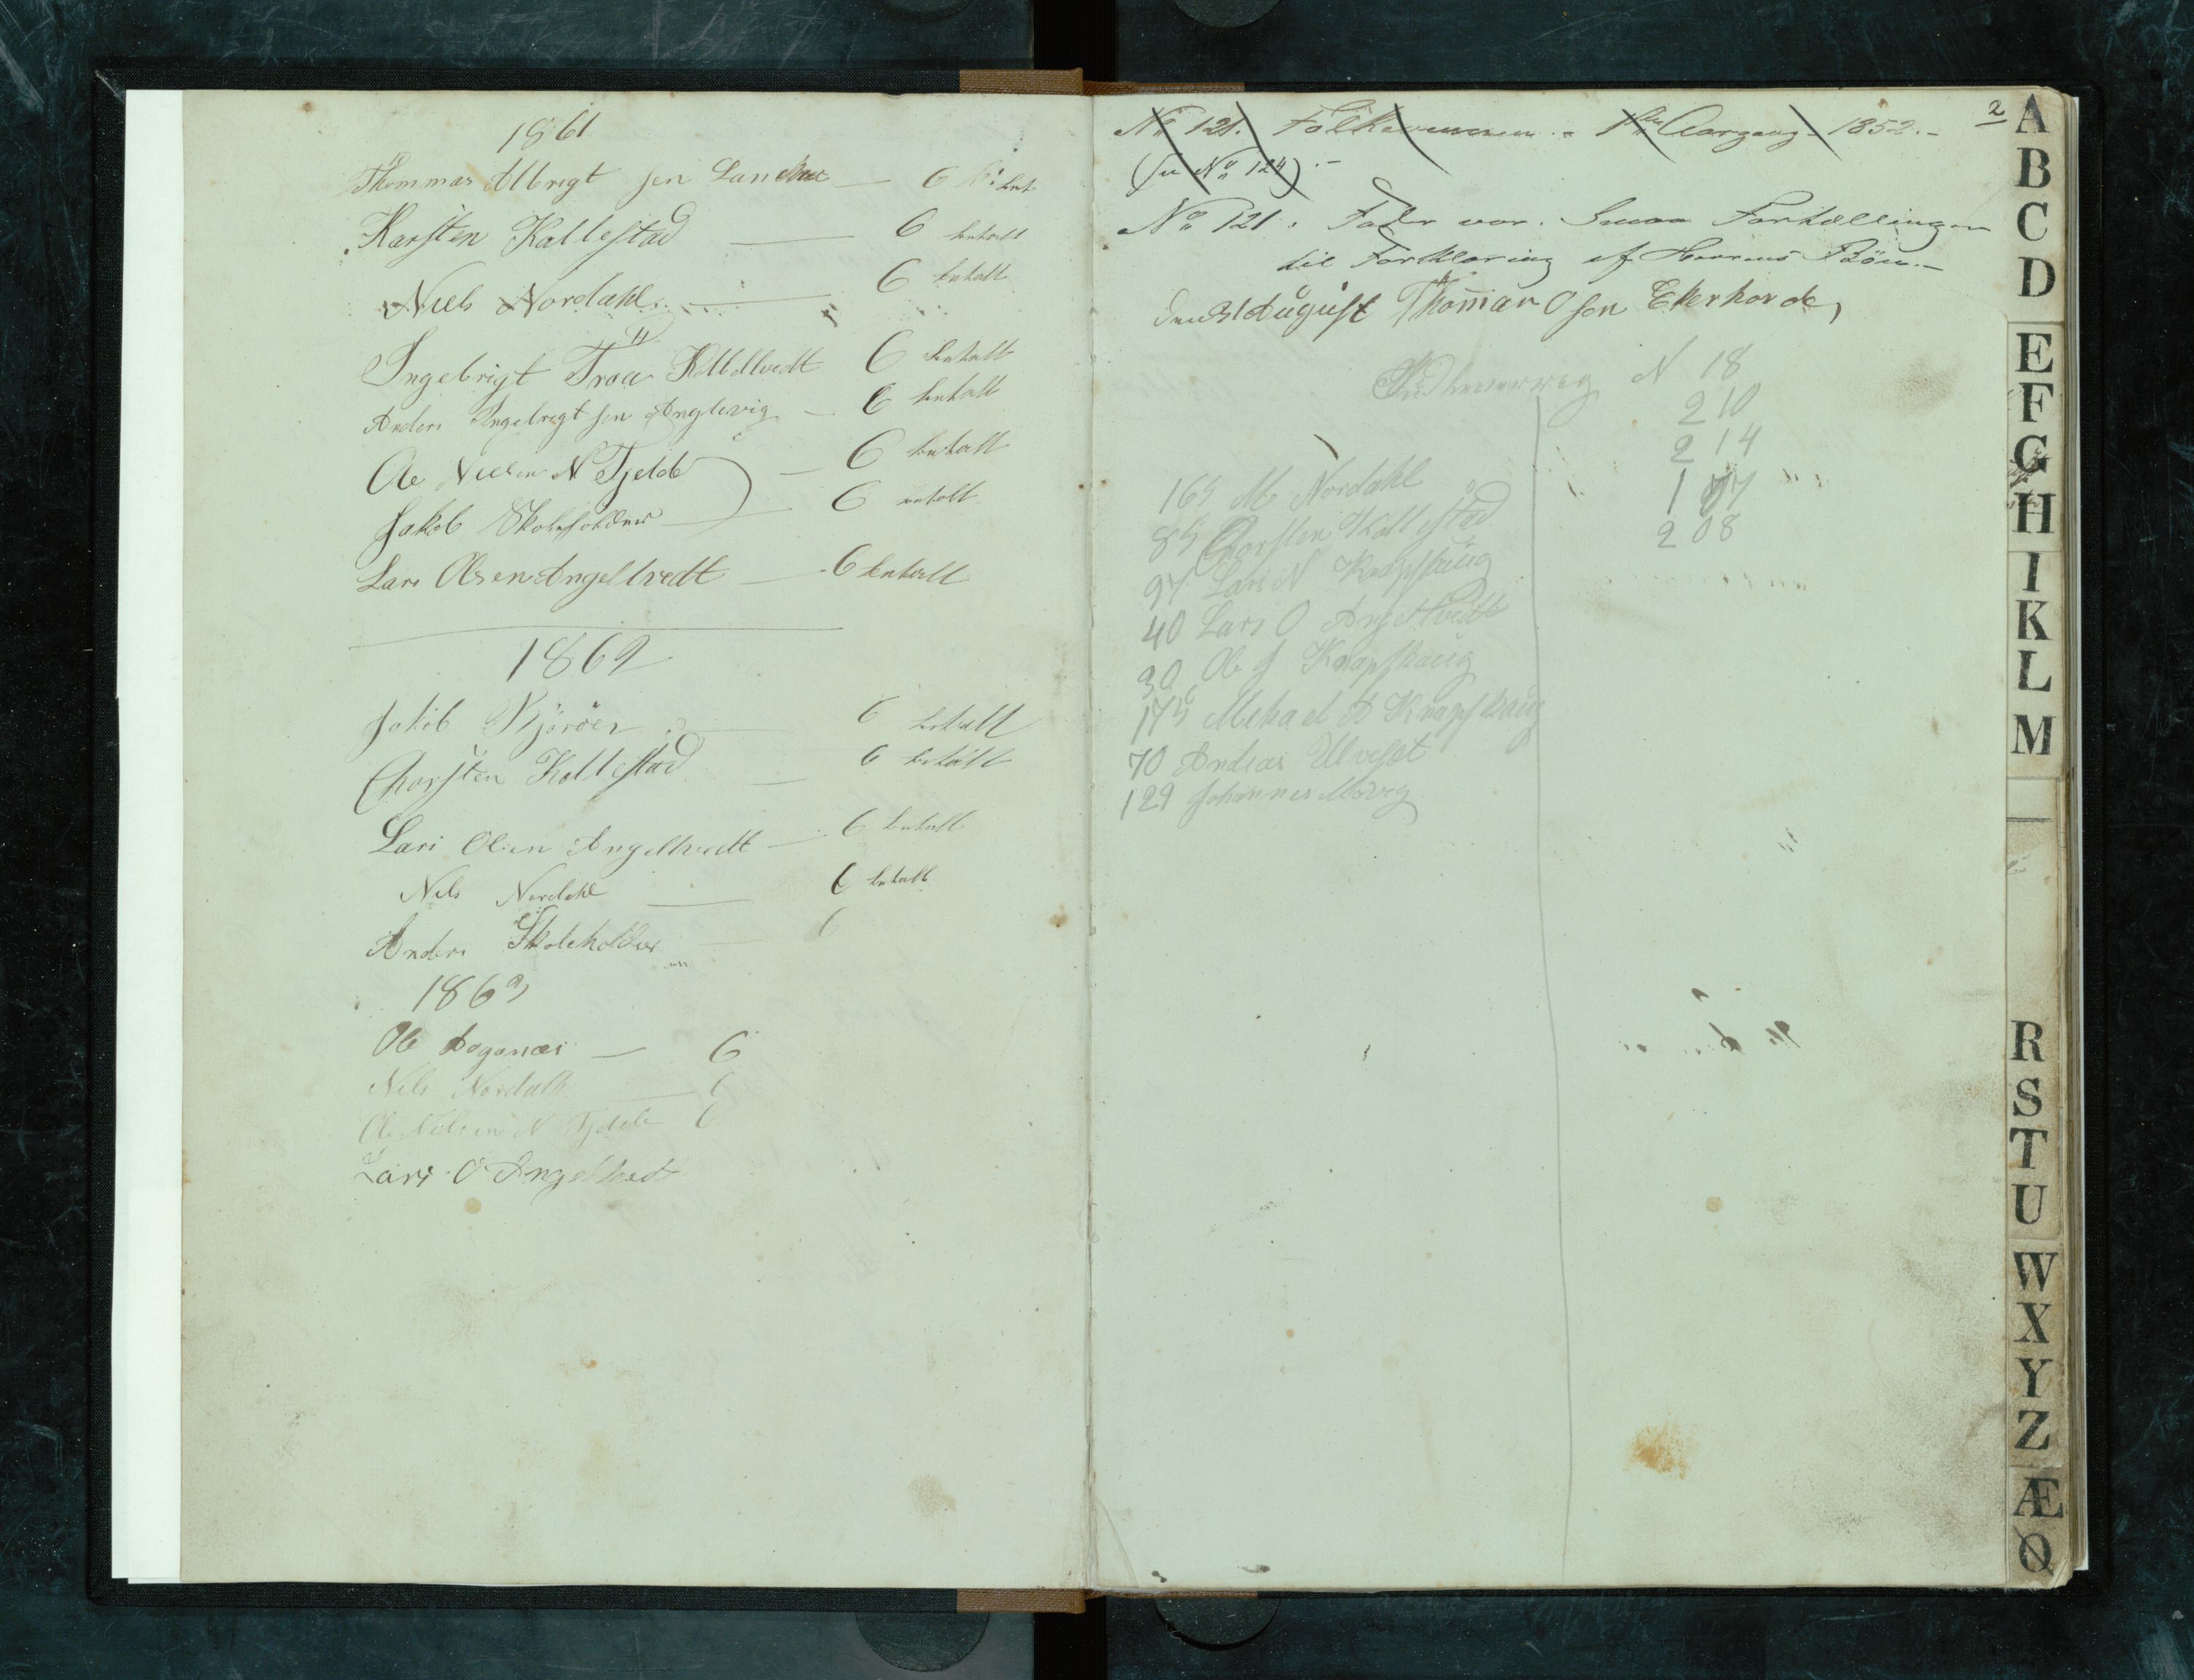 1861
Thommas Albrigt sen Landaas — 6
Karsten Kallestad — 6 betalt
Niels Nordahl — 6 betalt
Ingebrigt Troa 6 betalt
Anders Ingebrigt sen Anglevig — 6 betalt
Ole Nielsen N Tjelde — 6 betalt
Jakob Skoleholder — 6 betalt
Lars Olsen Angeltvedt — 6 betalt
1862
Jakob 6 betalt
Chorsten Kollestad — 6 betalt
Lars Olsen Angeltvedt — 6 betalt
Nils Nordahl — 6 betalt
Anders Skoleholder — 6
1863
Ole Aaganæs — 6
Nils Nordalh — 6
Ole Nilsen N Tjelde 6
Lars O Angeltvedt
2
No 121. Folkevennen. 1ste Aargang - 1852.-
(se No 124).-
No 121. Fader vor. Smaa Fortællinger
til Forklaring af Herrens Bön.-
den 31 August Thommas O sen Ekerhovde
N 18
210
214
208
165 M Nordahl
85 Chorsten Kallestad
97 Lars N Knapskaug
40 Lars O Angeltvedt
30 Ole J Knapskaug
175 Mehael A Knapskaug
70 Andreas Ulveset
129 Johannes Movig
A
B
C
D
E
F
G
H
I
K
L
M
R
S
T
U
W
X
Y
Z
Æ
Ø